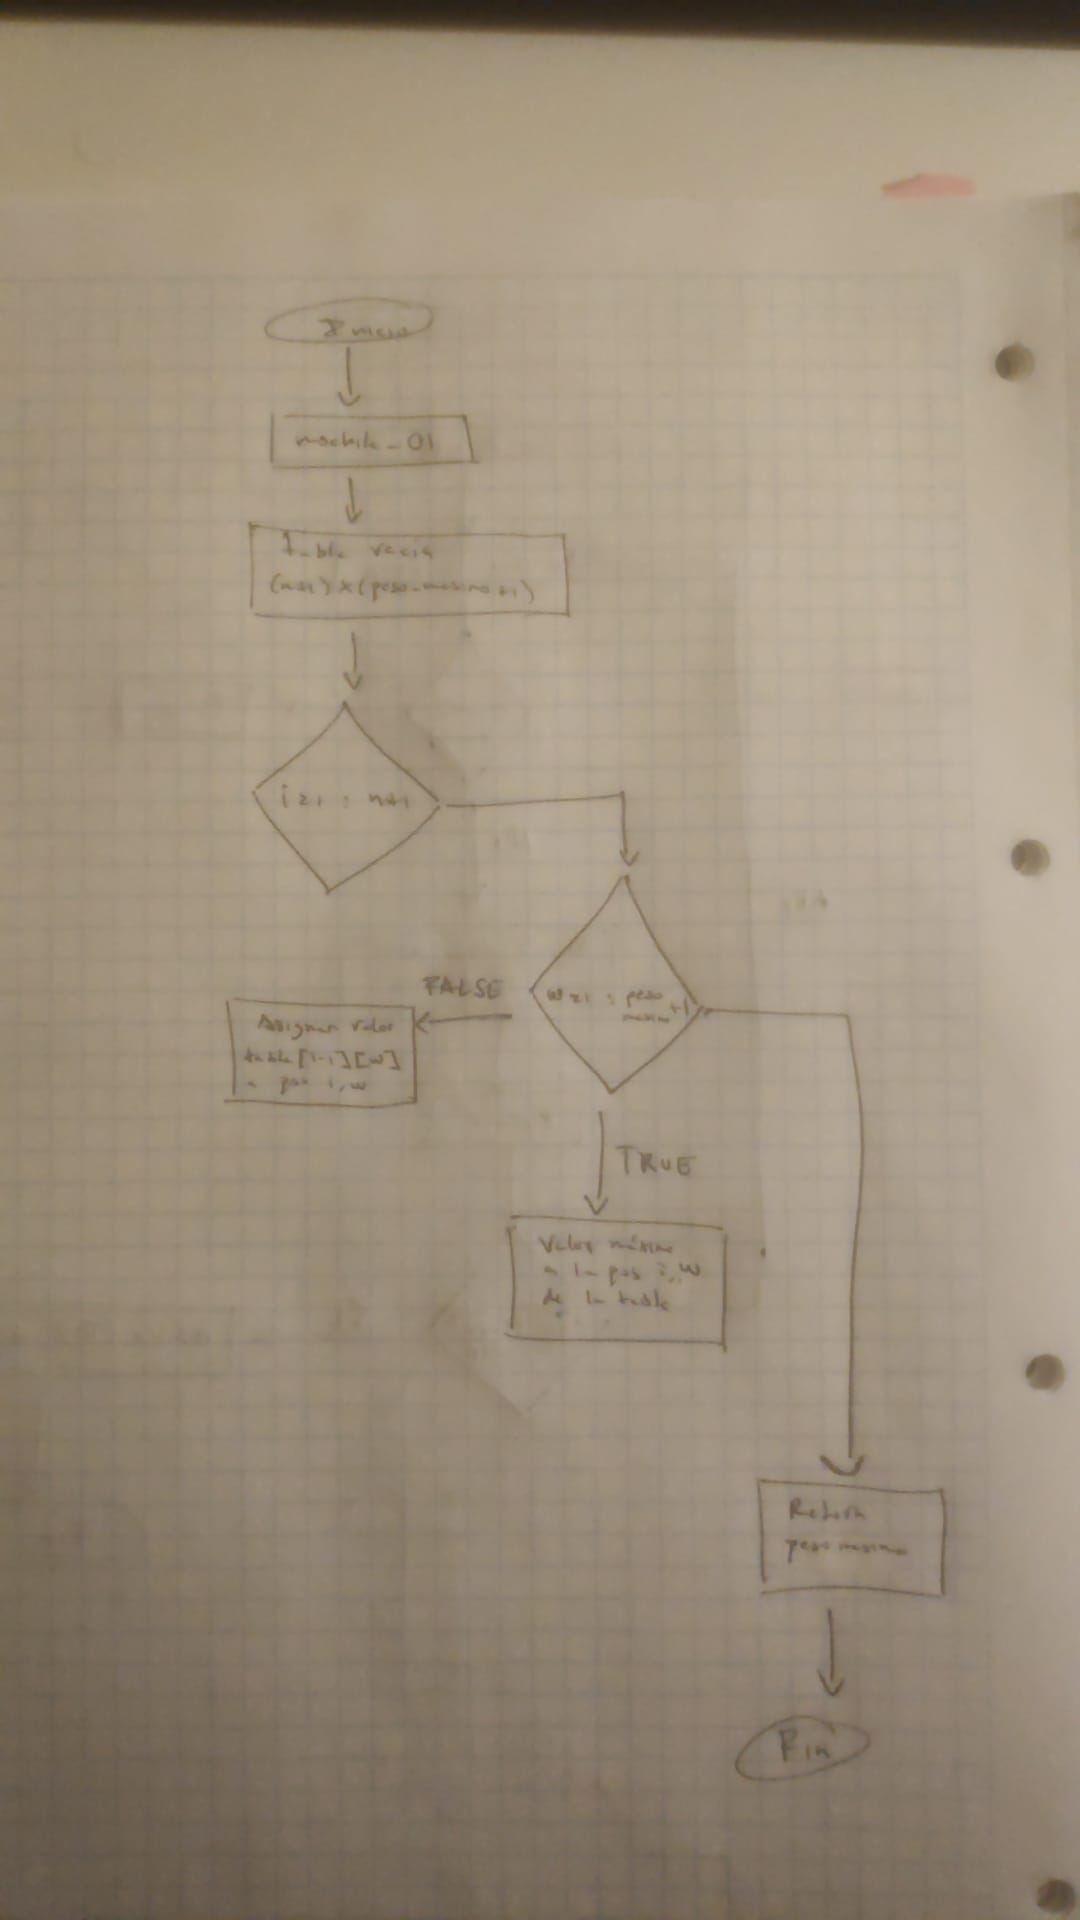 Inicio
mochila_01
tabla vacía
(n+1) x (peso_maximo+1)
i=1 : n+1
w=1 : peso maximo +1
FALSE
Asignar valor
tabla[i-1][w]
a pos i,w
TRUE
Valor máximo
a la pos i,w
de la tabla
Return
peso maximo
Fin